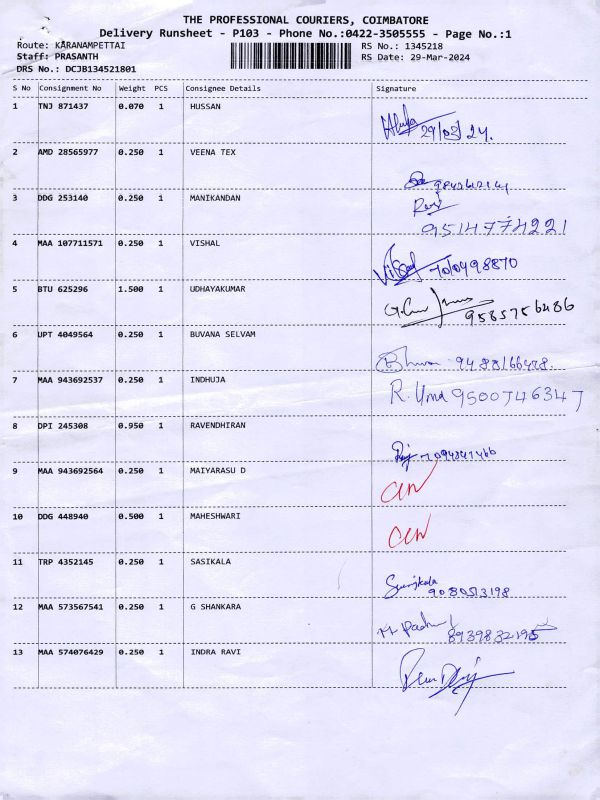 THE PROFESSIONAL COURIERS, COIMBATORE
Delivery Runsheet - P103 - Phone No.:0422-3505555 - Page No.:1
Route: KARANAMPETTAI RS No.: 1345218
Staff: PRASANTH RS Date: 29-Mar-2024
DRS No.: DCJB134521801
S No Consignment No Weight PCS Consignee Details Signature
1 TNJ 871437 0.070 1 HUSSAN
29/03/24.
2 AMD 28565977 0.250 1 VEENA TEX
3 DDG 253140 0.250 1 MANIKANDAN
9514774221
4 MAA 107711571 0.250 1 VISHAL
5 BTU 625296 1.500 1 UDHAYAKUMAR
9585756486
6 UPT 4049564 0.250 1 BUVANA SELVAM
7 MAA 943692537 0.250 1 INDHUJA
R. Uma 9500746347
8 DPI 245308 0.950 1 RAVENDHIRAN
9 MAA 943692564 0.250 1 MAIYARASU D
10 DDG 448940 0.500 1 MAHESHWARI
11 TRP 4352145 0.250 1 SASIKALA
12 MAA 573567541 0.250 1 G SHANKARA
13 MAA 574076429 0.250 1 INDRA RAVI